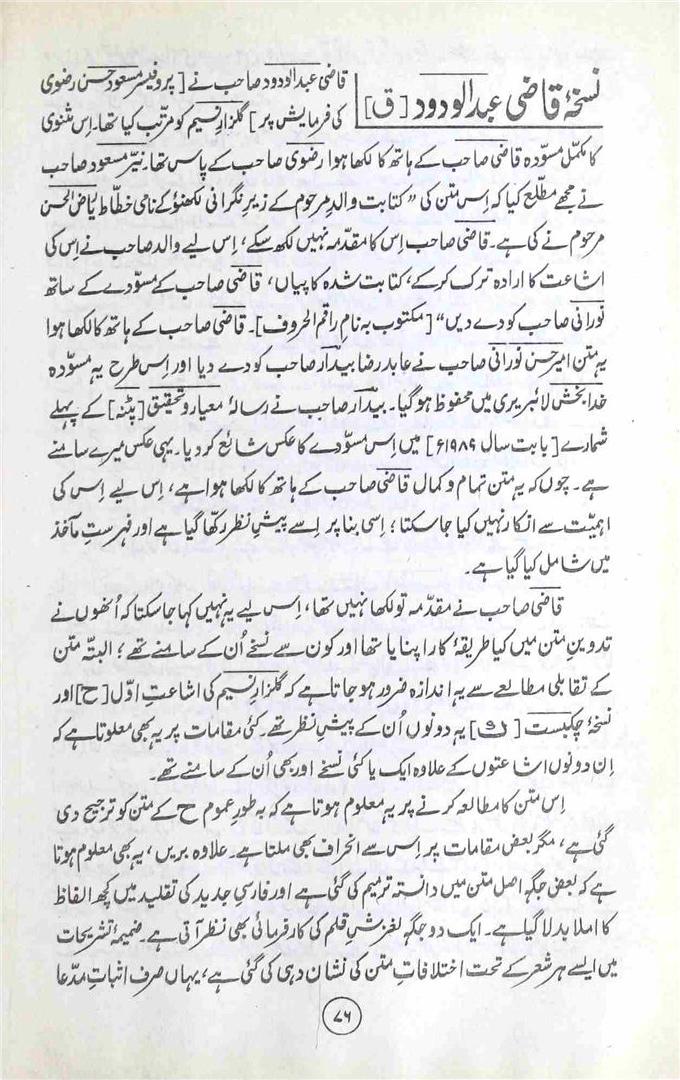 نسخۂ قاضی عبدالودود [ق]
قاضی عبدالودود صاحب نے [پروفیسر مسعود حسن رضوی
کی فرمایش پر] گلزارِ نسیم کو مرتّب کیا تھا۔ اِس مثنوی
کا مکمّل مسوّدہ قاضی صاحب کے ہاتھ کا لکھا ہوا رضوی صاحب کے پاس تھا۔ نیّر مسعود صاحب
نے مجھے مطّلع کیا کہ اِس متن کی ”کتابت والدِ مرحوم کے زیرِ نگرانی لکھنؤ کے نامی خطّاط ریاض الحسن
مرحوم نے کی ہے۔ قاضی صاحب اِس کا مقدّمہ نہیں لکھ سکے، اِس لیے والد صاحب نے اِس کی
اشاعت کا ارادہ ترک کر کے، کتابت شدہ کاپیاں، قاضی صاحب کے مسوّدے کے ساتھ
نورانی صاحب کو دے دیں“ [مکتوب بہ نامِ راقم الحروف]۔ قاضی صاحب کے ہاتھ کا لکھا ہوا
یہ متن امیر حسن نورانی صاحب نے عابد رضا بیدار صاحب کو دے دیا اور اِس طرح یہ مسوّدہ
خدا بخش لائبریری میں محفوظ ہو گیا۔ بیدار صاحب نے رسالۂ معیار و تحقیق [پٹنہ] کے پہلے
شمارے [بابت سال ۱۹۸۹ء] میں اِس مسوّدے کا عکس شائع کر دیا۔ یہی عکس میرے سامنے
ہے۔ چوں کہ یہ متن تمام و کمال قاضی صاحب کے ہاتھ کا لکھا ہوا ہے، اِس لیے اِس کی
اہمیّت سے انکار نہیں کیا جا سکتا؛ اِسی بنا پر اِسے پیشِ نظر رکھا گیا ہے اور فہرستِ مآخذ
میں شامل کیا گیا ہے۔
قاضی صاحب نے مقدّمہ تو لکھا نہیں تھا، اِس لیے یہ نہیں کہا جا سکتا کہ اُنھوں نے
تدوینِ متن میں کیا طریقۂ کار اپنایا تھا اور کون سے نسخے اُن کے سامنے تھے؛ البتّہ متن
کے تقابلی مطالعے سے یہ اندازہ ضرور ہو جاتا ہے کہ گلزارِ نسیم کی اشاعتِ اوّل [ح] اور
نسخۂ چکبست [ش] یہ دونوں اُن کے پیشِ نظر تھے۔ کئی مقامات پر یہ بھی معلوتا ہے کہ
اِن دونوں اشاعتوں کے علاوہ ایک یا کئی نسخے اور بھی اُن کے سامنے تھے۔
اِس متن کا مطالعہ کرنے پر یہ معلوم ہوتا ہے کہ بہ طورِ عموم ح کے متن کو ترجیح دی
گئی ہے، مگر بعض مقامات پر اِس سے انحراف بھی ملتا ہے۔ علاوہ بریں، یہ بھی معلوم ہوتا
ہے کہ بعض جگہ اصل متن میں دانستہ ترمیم کی گئی ہے اور فارسیِ جدید کی تقلید میں کچھ الفاظ
کا املا بدلا گیا ہے۔ ایک دو جگہ لغزشِ قلم کی کارفرمائی بھی نظر آتی ہے۔ ضمیمۂ تشریحات
میں ایسے ہر شعر کے تحت اختلافاتِ متن کی نشان دہی کی گئی ہے، یہاں صرف اثباتِ مدّعا
۷۶